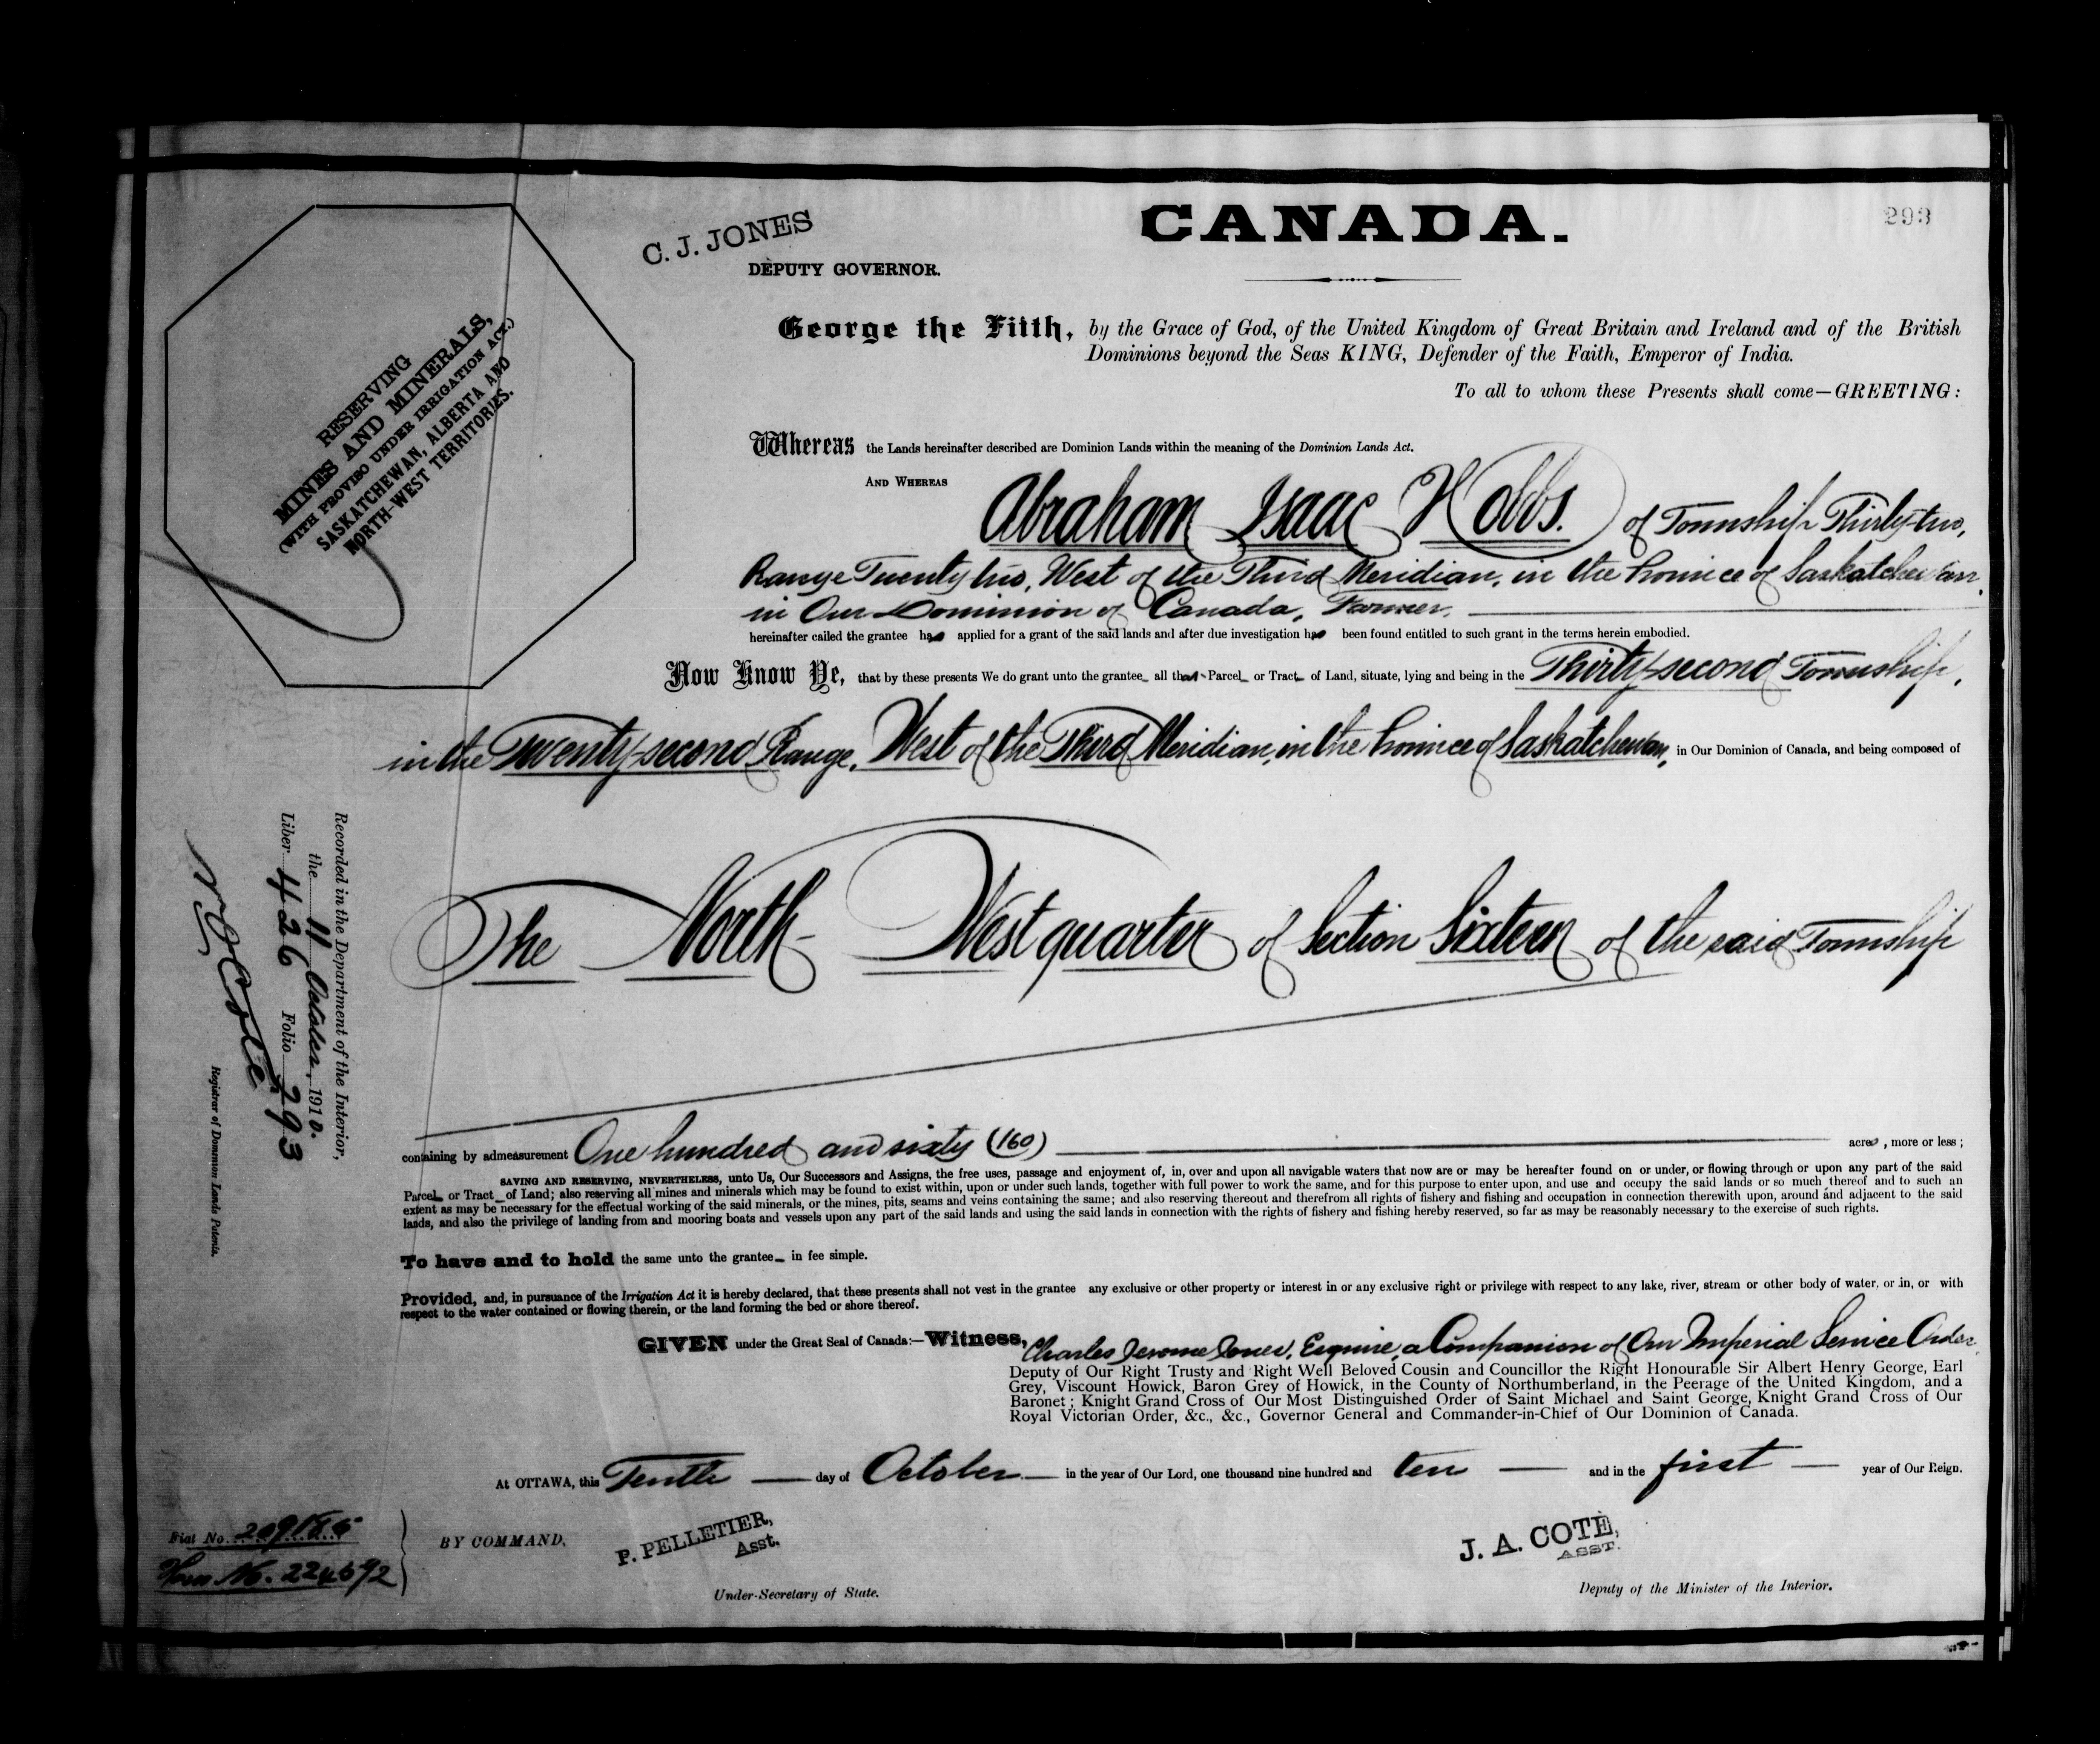 C. J. JONES
DEPUTY GOVERNOR.
CANADA.
293
RESERVING
MINES AND MINERALS,
(WITH PROVISO UNDER IRRIGATION ACT.)
SASKATCHEWAN, ALBERTA AND
NORTH-WEST TERRITORIES.
George the Fifth, by the Grace of God, of the United Kingdom of Great Britain and Ireland and of the British
Dominions beyond the Seas KING, Defender of the Faith, Emperor of India.
To all to whom these Presents shall come—GREETING:
Whereas the Lands hereinafter described are Dominion Lands within the meaning of the Dominion Lands Act.
AND WHEREAS Abraham Isaac Hobbs. of Township Thirty-two,
Range Twenty two, West of the Third Meridian, in the Province of Saskatchewan.
in Our Dominion of Canada, Farmer,
hereinafter called the grantee has applied for a grant of the said lands and after due investigation has been found entitled to such grant in the terms herein embodied.
Now Know Ye, that by these presents We do grant unto the grantee all that Parcel or Tract of Land, situate, lying and being in the Thirty-second Township,
in the Twenty-second Range, West of the Third Meridian, in the Province of Saskatchewan, in Our Dominion of Canada, and being composed of
The North-West quarter of Section Sixteen of the said Township
Recorded in the Department of the Interior,
the 11 October, 1910.
Liber 426 Folio 293
N O Coté
Registrar of Dominion Lands Patents.
containing by admeasurement One hundred and sixty (160) acres, more or less;
SAVING AND RESERVING, NEVERTHELESS, unto Us, Our Successors and Assigns, the free uses, passage and enjoyment of, in, over and upon all navigable waters that now are or may be hereafter found on or under, or flowing through or upon any part of the said
Parcel or Tract of Land; also reserving all mines and minerals which may be found to exist within, upon or under such lands, together with full power to work the same, and for this purpose to enter upon, and use and occupy the said lands or so much thereof and to such an
extent as may be necessary for the effectual working of the said minerals, or the mines, pits, seams and veins containing the same; and also reserving thereout and therefrom all rights of fishery and fishing and occupation in connection therewith upon, around and adjacent to the said
lands, and also the privilege of landing from and mooring boats and vessels upon any part of the said lands and using the said lands in connection with the rights of fishery and fishing hereby reserved, so far as may be reasonably necessary to the exercise of such rights.
To have and to hold the same unto the grantee in fee simple.
Provided, and, in pursuance of the Irrigation Act it is hereby declared, that these presents shall not vest in the grantee any exclusive or other property or interest in or any exclusive right or privilege with respect to any lake, river, stream or other body of water, or in, or with
respect to the water contained or flowing therein, or the land forming the bed or shore thereof.
GIVEN under the Great Seal of Canada:—Witness, Charles Jerome Jones, Esquire, a Companion of Our Imperial Service Order,
Deputy of Our Right Trusty and Right Well Beloved Cousin and Councillor the Right Honourable Sir Albert Henry George, Earl
Grey, Viscount Howick, Baron Grey of Howick, in the County of Northumberland, in the Peerage of the United Kingdom, and a
Baronet; Knight Grand Cross of Our Most Distinguished Order of Saint Michael and Saint George, Knight Grand Cross of Our
Royal Victorian Order, &c., &c., Governor General and Commander-in-Chief of Our Dominion of Canada.
At OTTAWA, this Tenth day of October in the year of Our Lord, one thousand nine hundred and ten and in the first year of Our Reign.
Fiat No.
BY COMMAND,
P. PELLETIER,
Asst.
Under-Secretary of State.
J. A. COTÉ,
ASST.
Deputy of the Minister of the Interior.